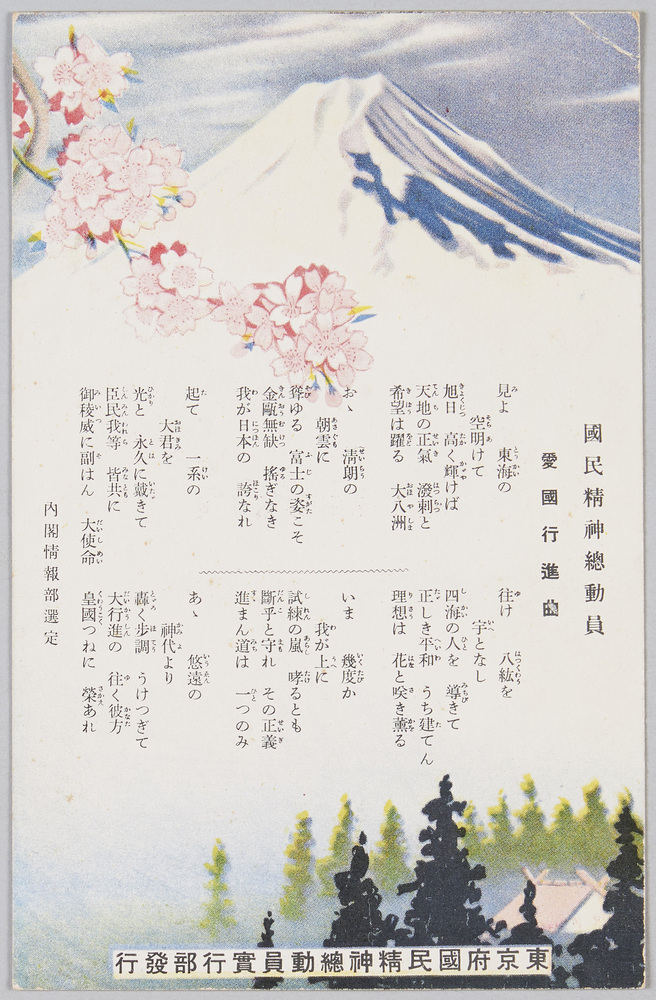 國民精神總動員
愛國行進曲
見よ　東海の
空明けて
旭日　高く輝けば
天地の正氣　潑剌と
希望は躍る　大八洲
おゝ　淸朗の
朝雲に
聳ゆる　富士の姿こそ
金甌無缺　搖ぎなき
我が日本の　誇なれ
起て　一系の
大君を
光と　永久に戴きて
臣民我等　皆共に
御稜威に副はん　大使命
往け　八紘を
宇となし
四海の人を　導きて
正しき平和　うち建てん
理想は　花と咲き薫る
いま　幾度か
我が上に
試練の嵐　哮るとも
斷乎と守れ　その正義
進まん道は　一つのみ
あゝ　悠遠の
神代より
轟く歩調　うけつぎて
大行進の　往く彼方
皇國つねに　榮あれ
內閣情報部選定
東京府國民精神總動員實行部發行